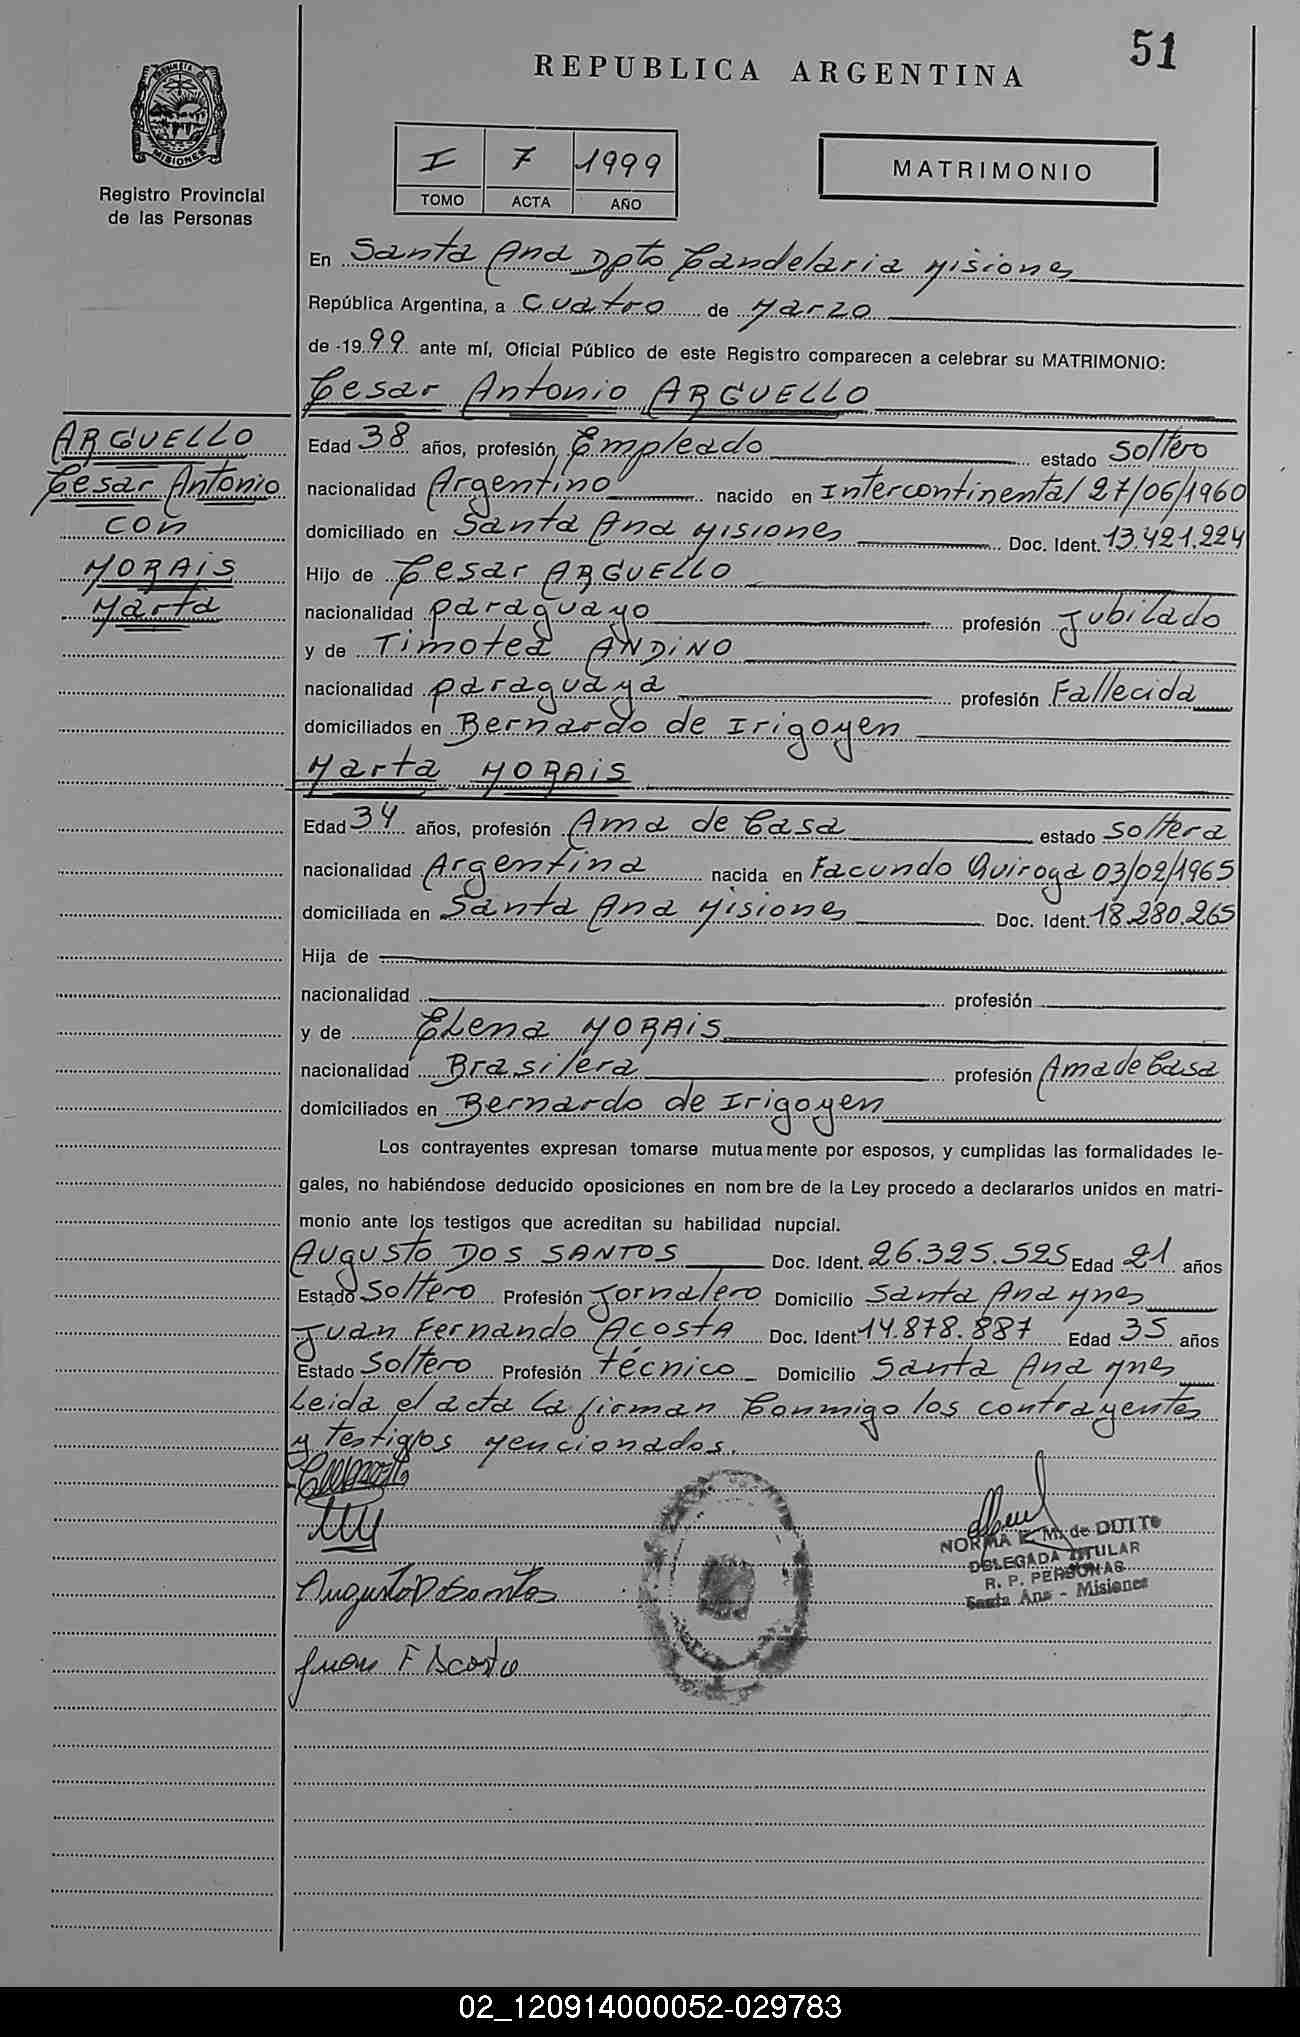 51
REPUBLICA ARGENTINA
PROVINCIA DE MISIONES
Registro Provincial
de las Personas
I 7 1999
TOMO ACTA AÑO
MATRIMONIO
En Santa Ana Dpto Candelaria Misiones
República Argentina, a cuatro de Marzo
de 1999 ante mí, Oficial Público de este Registro comparecen a celebrar su MATRIMONIO:
Cesar Antonio ARGUELLO
ARGUELLO
Cesar Antonio
con
MORAIS
Marta
Edad 38 años, profesión Empleado estado soltero
nacionalidad Argentino nacido en Intercontinental 27/06/1960
domiciliado en Santa Ana Misiones Doc. Ident. 13.421.224
Hijo de Cesar ARGUELLO
nacionalidad paraguayo profesión Jubilado
y de Timotea ANDINO
nacionalidad paraguaya profesión Fallecida
domiciliados en Bernardo de Irigoyen
Marta MORAIS
Edad 34 años, profesión Ama de Casa estado soltera
nacionalidad Argentina nacida en Facundo Quiroga 03/02/1965
domiciliada en Santa Ana Misiones Doc. Ident. 18.280.265
Hija de
nacionalidad profesión
y de Elena MORAIS
nacionalidad Brasilera profesión Ama de Casa
domiciliados en Bernardo de Irigoyen
Los contrayentes expresan tomarse mutuamente por esposos, y cumplidas las formalidades le-
gales, no habiéndose deducido oposiciones en nombre de la Ley procedo a declararlos unidos en matri-
monio ante los testigos que acreditan su habilidad nupcial.
Augusto DOS SANTOS Doc. Ident. 26.325.525 Edad 21 años
Estado Soltero Profesión Jornalero Domicilio Santa Ana Mnes
Juan Fernando Acosta Doc. Ident. 14.878.887 Edad 35 años
Estado Soltero Profesión técnico Domicilio Santa Ana Mnes
Leida el acta la firman Conmigo los contrayentes
y testigos mencionados.
NORMA E. M. de DUTTO
DELEGADA TITULAR
R. P. PERSONAS
Santa Ana - Misiones
Augusto D Santos
Juan F Acosta
02_120914000052-029783